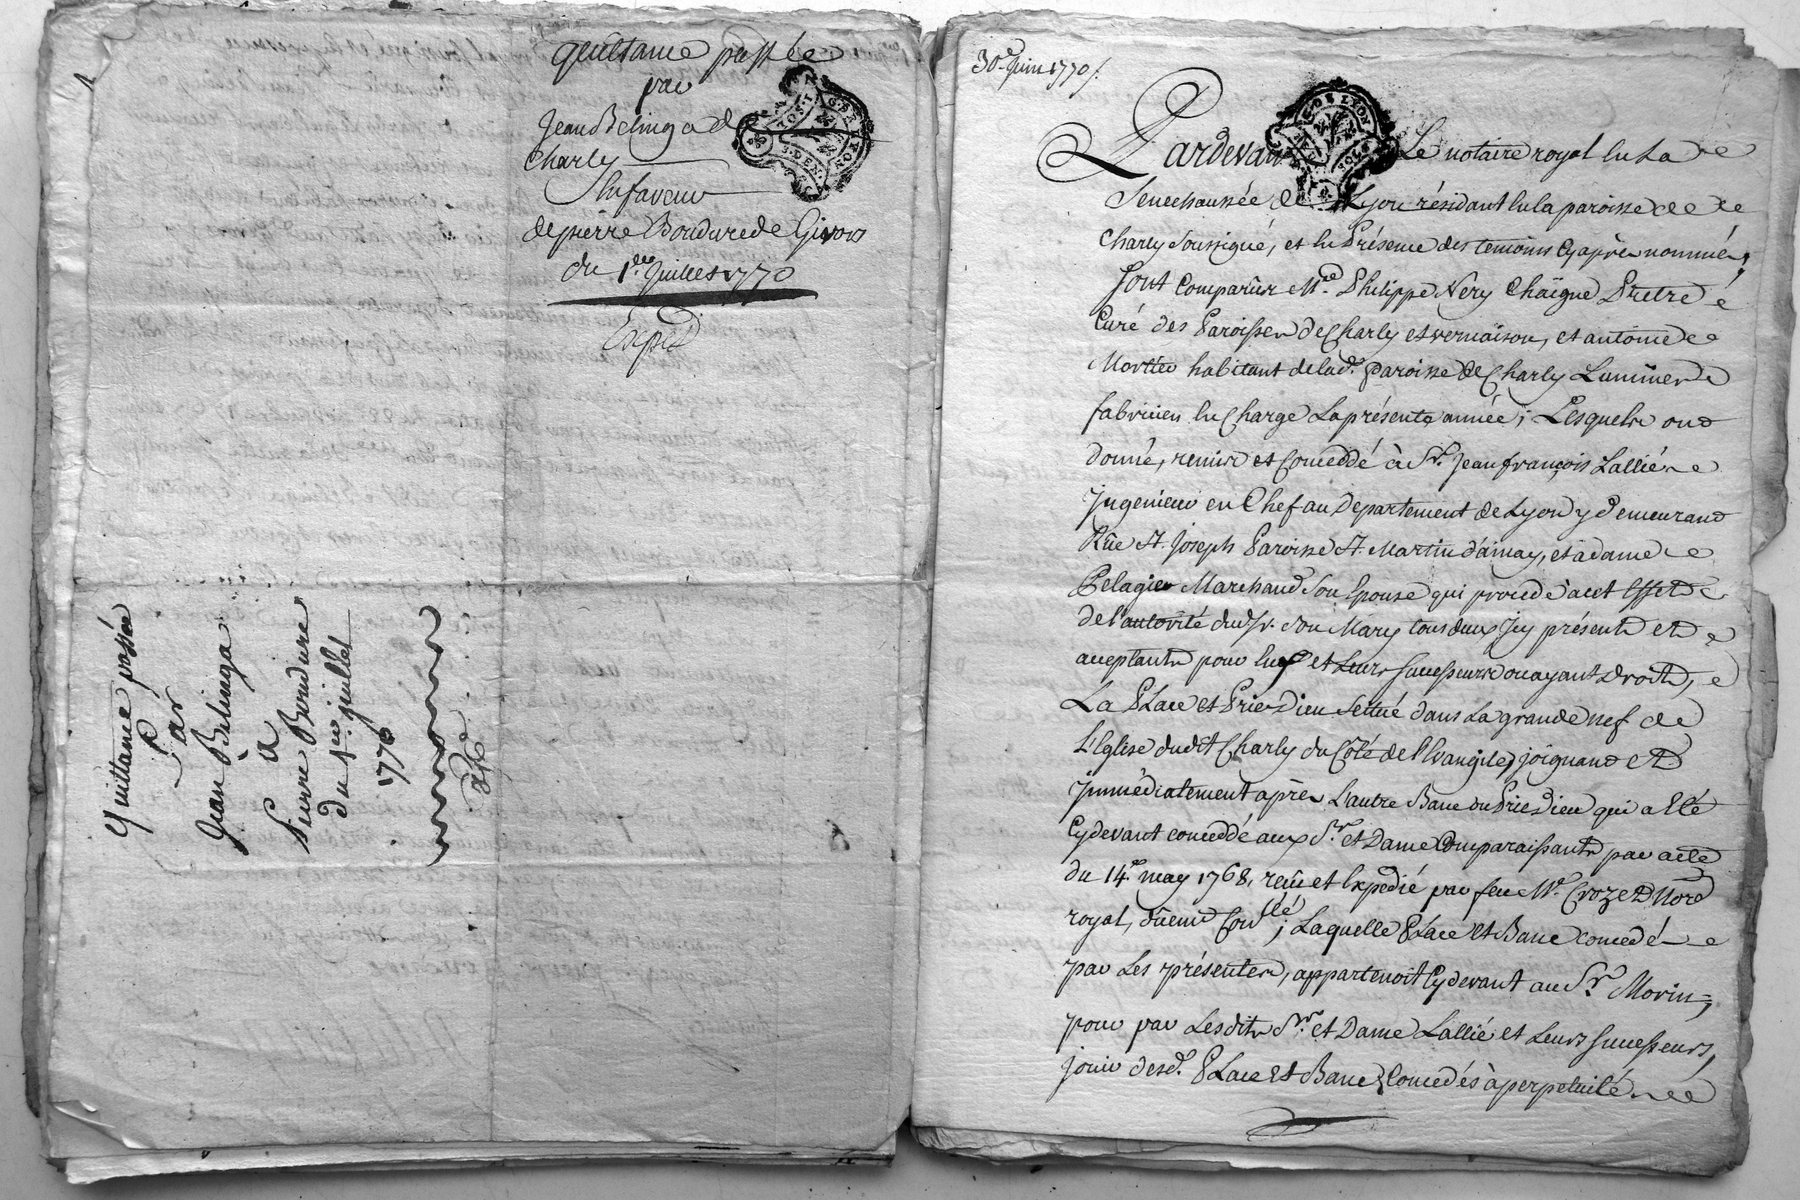 quittance passée
par
Jean Belinga de
Charly
En faveur
de pierre Bondure de Givors
du 1er Juillet 1770
Expéd
G. DE LYON
2. S. DEN.
Quittance passée
Par
Jean Belinga
a
Pierre Bondure
du 1er juillet
1770
30e Juin 1770
G. DE LYON
Pardevant Le notaire royal En La
Senechaussée de Lyon résidant En la paroisse de
Charly Soussigné, et En Présence des temoins Cyaprès nommés,
Sont Comparus Mre Philippe Nery Chaîgne Prêtre
Curé des Paroisses de Charly et vernaison, et antoine
Mortier habitant de lade paroisse de Charly Luminier
fabricien En Charge La présente année; Lesquels ont
donné, remis et Concedé à Sr. Jean françois Lallié
Ingenieur en Chef au Departement de Lyon y demeurant
Rüe St. Joseph Paroisse St. Martin d'ainay, et à dame
Pelagie Marchand Son Epouse qui procede à cet Effet
de l'autorité dud. Sr. Son Mary tous deux Icy présents et
acceptants pour Eux et Leurs successeurs ou ayant Droits,
La Place et Prie-Dieu Scitué dans La grande nef de
L'Eglise dudit Charly du Côté de l'Evangile, joignant et
Immédiatement après L'autre Banc ou Prie-dieu qui a Eté
Cydevant concedé aux Sr. et Dame Comparaissants par acte
du 14e may 1768, reçu et Expedié par feu Me. Crozet Nore
royal, düement Conllé; Laquelle Place et Banc concedé
par Les présentes, appartenoit Cydevant au Sr. Morin;
pour par Lesdits Sr. et Dame Lallié et Leurs Successeurs,
Jouir desd. Place et Banc Concedés à perpetuité